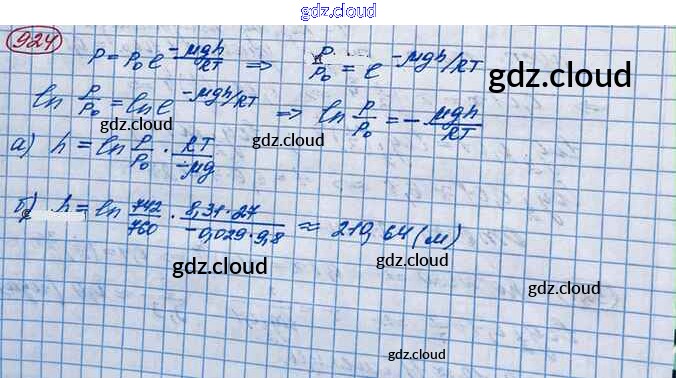 gdz.cloud
924
P = P₀ e^(-μgh/RT) ⇒ P/P₀ = e^(-μgh/RT)
gdz.cloud
ln P/P₀ = ln e^(-μgh/RT) ⇒ ln P/P₀ = - μgh/RT
gdz.cloud
gdz.cloud
а) h = ln P/P₀ · RT/-μg
б) h = ln 742/760 · 8,31·27/-0,029·9,8 ≈ 210,64 (м)
gdz.cloud
gdz.cloud
gdz.cloud
gdz.cloud